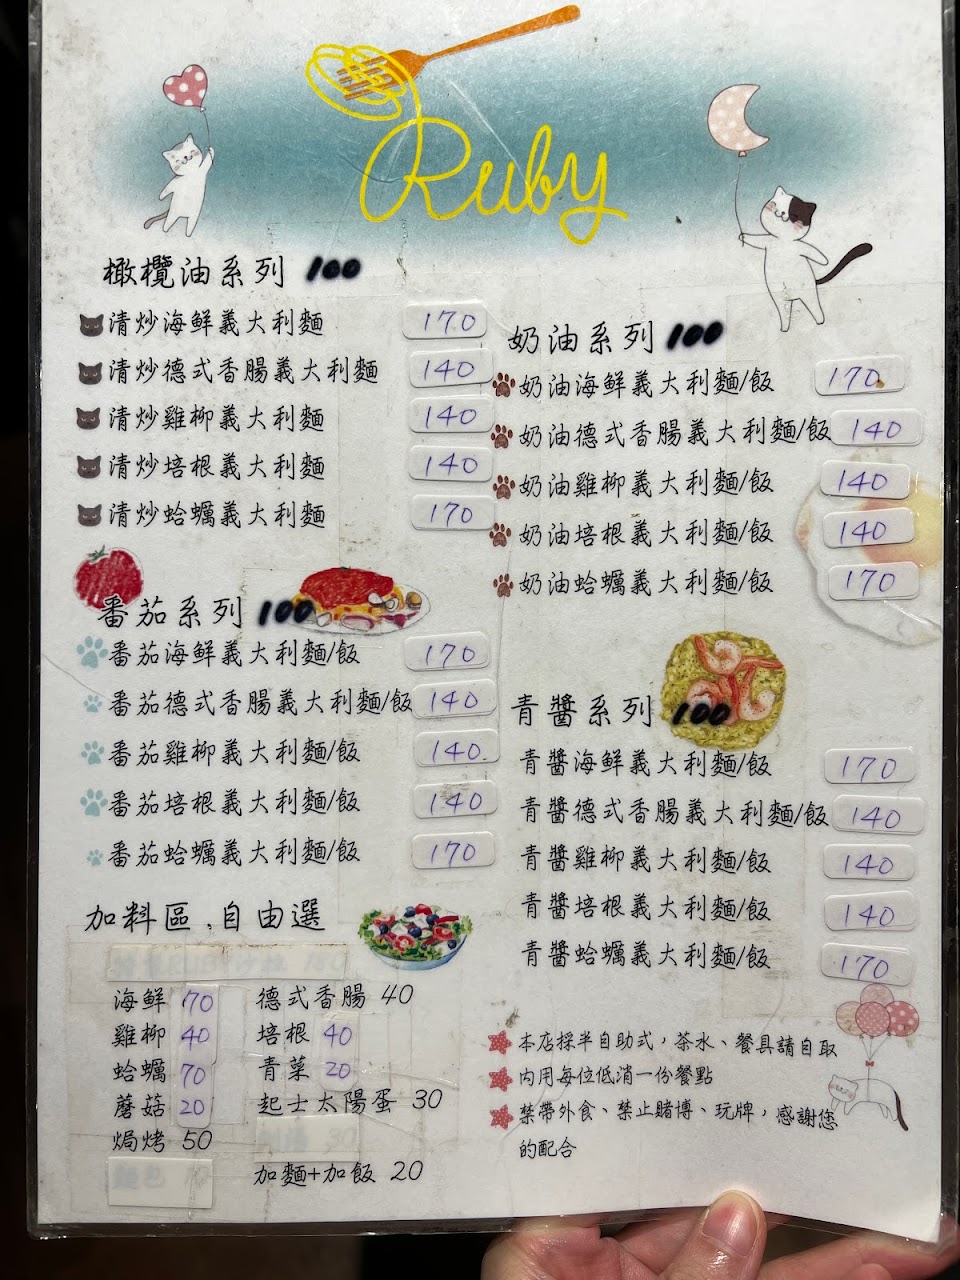 Ruby
橄欖油系列 100
清炒海鮮義大利麵 170
清炒德式香腸義大利麵 140
清炒雞柳義大利麵 140
清炒培根義大利麵 140
清炒蛤蠣義大利麵 170
番茄系列 100
番茄海鮮義大利麵/飯 170
番茄德式香腸義大利麵/飯 140
番茄雞柳義大利麵/飯 140
番茄培根義大利麵/飯 140
番茄蛤蠣義大利麵/飯 170
奶油系列 100
奶油海鮮義大利麵/飯 170
奶油德式香腸義大利麵/飯 140
奶油雞柳義大利麵/飯 140
奶油培根義大利麵/飯 140
奶油蛤蠣義大利麵/飯 170
青醬系列 100
青醬海鮮義大利麵/飯 170
青醬德式香腸義大利麵/飯 140
青醬雞柳義大利麵/飯 140
青醬培根義大利麵/飯 140
青醬蛤蠣義大利麵/飯 170
加料區,自由選
海鮮 70
雞柳 40
蛤蠣 70
蘑菇 20
焗烤 50
德式香腸 40
培根 40
青菜 20
起士太陽蛋 30
加麵+加飯 20
本店採半自助式，茶水、餐具請自取
內用每位低消一份餐點
禁帶外食、禁止賭博、玩牌，感謝您
的配合